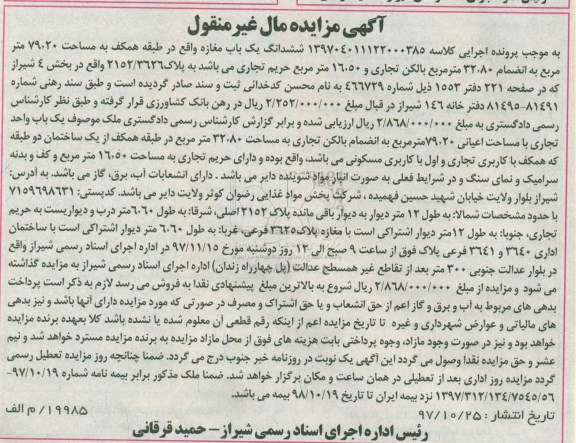 آگهی مزایده مال غیر منقول
به موجب پرونده اجرایی کلاسه ۱۳۹۷۰۴۰۱۱۱۲۲۰۰۰۳۸۵ ششدانگ یک باب مغازه واقع در طبقه همکف به مساحت ۷۹،۲۰ متر
مربع به انضمام ۳۲،۸۰ مترمربع بالکن تجاری و ۱۶،۵۰ متر مربع حریم تجاری می باشد به پلاک۲۱۵۲/۳۶۲۶ واقع در بخش ۴ شیراز
که در صفحه ۲۲۱ دفتر ۱۵۵۳ ذیل شماره ۴۶۶۷۲۹ به نام محسن کدخدائی ثبت و سند صادر گردیده است و طبق سند رهنی شماره
۸۱۴۹۱-۸۱۴۹۵ دفتر خانه ۱۴۶ شیراز در قبال مبلغ ۲/۲۵۲/۰۰۰/۰۰۰ ریال در رهن بانک کشاورزی قرار گرفته و طبق نظر کارشناس
رسمی دادگستری به مبلغ ۲/۸۶۸/۰۰۰/۰۰۰ ریال ارزیابی شده و برابر گزارش کارشناس رسمی دادگستری ملک موصوف یک باب واحد
تجاری با مساحت اعیانی ۷۹،۲۰مترمربع به انضمام بالکن تجاری به مساحت ۳۲،۸۰ متر مربع در طبقه همکف از یک ساختمان دو طبقه
که همکف با کاربری تجاری و اول با کاربری مسکونی می باشد، واقع بوده و دارای حریم تجاری به مساحت ۱۶،۵۰ متر مربع و کف و بدنه
سرامیک و نمای سنگ و در شرایط فعلی به صورت انبار مواد شوینده دایر می باشد . دارای انشعابات آب، برق، گاز می باشد. به آدرس:
شیراز بلوار ولایت خیابان شهید حسین فهمیده ، شرکت پخش مواد غذایی رضوان کوثر ولایت دایر می باشد. کدپستی: ۷۱۵۹۶۹۸۶۳۱
با حدود مشخصات شمالا: به طول ۱۲ متر دیوار به دیوار باقی مانده پلاک ۲۱۵۲ اصلی، شرقا: به طول ۶،۶۰متر درب و دیواریست به حریم
تجاری، جنوبا: به طول ۱۲متر دیوار اشتراکی است با مغازه پلاک۳۶۲۵ فرعی، غربا: به طول ۶،۶۰ متر دیوار اشتراکی است با ساختمان
اداری ۳۶۴۰ و ۳۶۴۱ فرعی پلاک فوق از ساعت ۹ صبح الی ۱۲ روز دوشنبه مورخ ۹۷/۱۱/۱۵ در اداره اجرای اسناد رسمی شیراز واقع
در بلوار عدالت جنوبی ۳۰۰ متر بعد از تقاطع غیر همسطح عدالت (پل چهارراه زندان) اداره اجرای اسناد رسمی شیراز به مزایده گذاشته
می شود و مزایده از مبلغ ۲/۸۶۸/۰۰۰/۰۰۰ ریال شروع به بالاترین مبلغ پیشنهادی نقدا به فروش می رسد لازم به ذکر است پرداخت
بدهی های مربوط به آب و برق و گاز اعم از حق انشعاب و یا حق اشتراک و مصرف در صورتی که مورد مزایده دارای آنها باشد و نیز بدهی
های مالیاتی و عوارض شهرداری و غیره تا تاریخ مزایده اعم از اینکه رقم قطعی آن معلوم شده یا نشده باشد کلا بعهده برنده مزایده
خواهد بود و نیز در صورت وجود مازاد، وجوه پرداختی بابت هزینه های فوق از محل مازاد مزایده به برنده مزایده مسترد خواهد شد و نیم
عشر و حق مزایده نقدا وصول می گردد این آگهی یک نوبت در روزنامه خبر جنوب درج می گردد. ضمنا چنانچه روز مزایده تعطیل رسمی
گردد مزایده روز اداری بعد از تعطیلی در همان ساعت و مکان برگزار خواهد شد. ضمنا ملک مذکور برابر بیمه نامه شماره ۹۷/۱۰/۱۹-
۱۳۹۷/۳۱۲/۱۳۴/۷۵۴۵/۵۶ نزد بیمه ایران تا تاریخ ۹۸/۱۰/۱۹ بیمه می باشد.
تاریخ انتشار : ۹۷/۱۰/۲۵
۱۹۹۸۵/م الف
رئیس اداره اجرای اسناد رسمی شیراز - حمید قرقانی